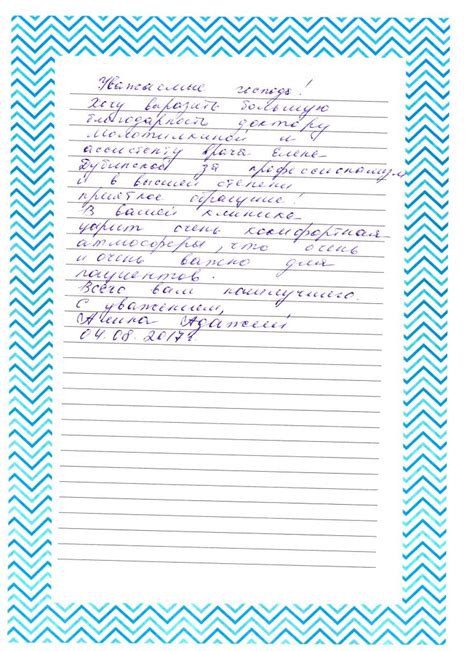 Уважаемые господа!
Хочу выразить большую
благодарность доктору
Молотилкиной и
ассистенту врача Елене
Дубинской за профессионализм
и в высшей степени
приятное обращение!
В вашей клинике
царит очень комфортная
атмосфера, что очень
и очень важно для
пациентов.
Всего вам наилучшего.
С уважением,
04.08.2017г.